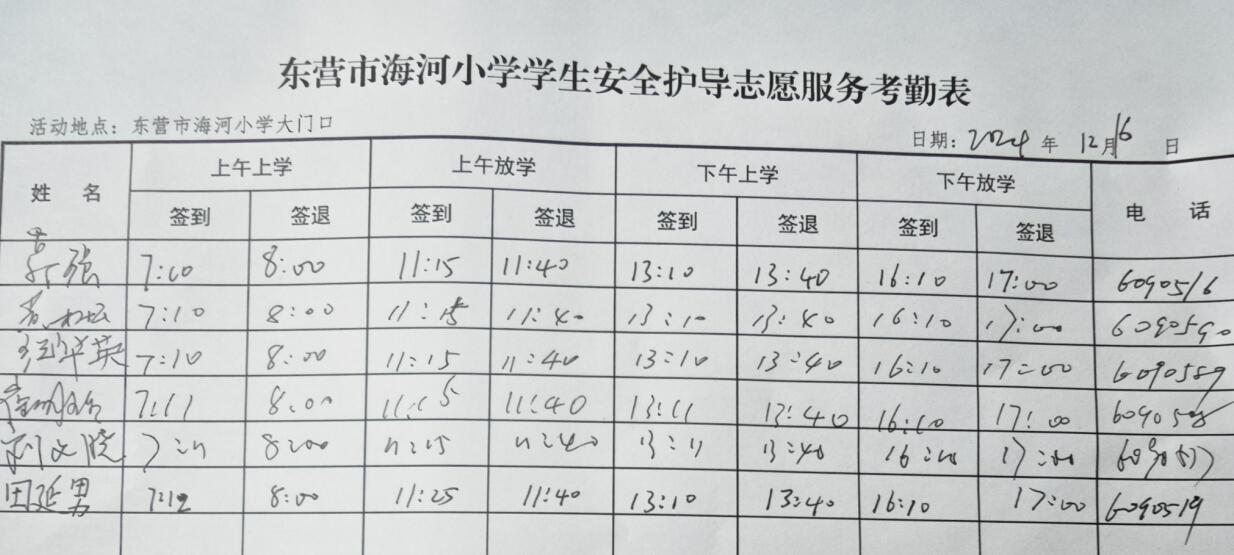 东营市海河小学学生安全护导志愿服务考勤表
活动地点：东营市海河小学大门口 日期：2024年12月16日
姓名 上午上学 上午放学 下午上学 下午放学 电话
签到 签退 签到 签退 签到 签退 签到 签退
强 7:10 8:00 11:15 11:40 13:10 13:40 16:10 17:00 6090516
7:10 8:00 11:15 11:40 13:10 13:40 16:10 17:00 6090590
华英 7:10 8:00 11:15 11:40 13:10 13:40 16:10 17:00 6090589
7:11 8:00 11:15 11:40 13:11 13:40 16:10 17:00
刘文院 7:11 8:00 11:15 11:40 13:11 13:40 16:10 17:00
田延男 7:12 8:00 11:25 11:40 13:10 13:40 16:10 17:00 6090519